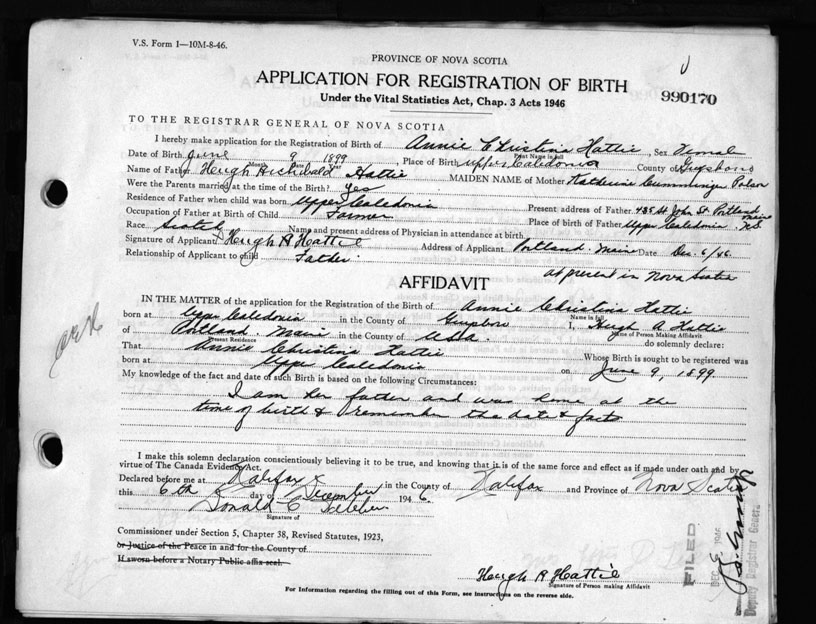 V.S. Form 1—10M-8-46.
PROVINCE OF NOVA SCOTIA
APPLICATION FOR REGISTRATION OF BIRTH
990170
Under the Vital Statistics Act, Chap. 3 Acts 1946
TO THE REGISTRAR GENERAL OF NOVA SCOTIA
I hereby make application for the Registration of Birth of Annie Christina Hattie, Sex Femal
Print Name in full
Date of Birth June 9 1899, Place of Birth Upper Caledonia County of Guysboro
Month Date Year
Name of Father Heugh Archibald Hattie MAIDEN NAME of Mother Katherine Cumminger Polson
Were the Parents married at the time of the Birth? yes
Residence of Father when child was born Upper Caledonia Present address of Father 485 St John St Portland Maine
Occupation of Father at Birth of Child Farmer Place of birth of Father Upper Caledonia N.S.
Race Scotch Name and present address of Physician in attendance at birth
Signature of Applicant Heugh A Hattie Address of Applicant Portland. Maine Date Dec. 6/46.
Relationship of Applicant to child Father.
at present in Nova Scotia
AFFIDAVIT
IN THE MATTER of the application for the Registration of the Birth of Annie Christina Hattie
Name in full
born at Upper Caledonia in the County of I, Hugh A Hattie
Name of Person Making Affidavit
of Portland. Maine in the County of USA. do solemnly declare:
Present Residence
That Annie Christina Hattie Whose Birth is sought to be registered was
born at Upper Caledonia on June 9, 1899
My knowledge of the fact and date of such Birth is based on the following Circumstances:
I am her father and was home at the
time of birth & remember the date & facts
I make this solemn declaration conscientiously believing it to be true, and knowing that it is of the same force and effect as if made under oath and by
virtue of The Canada Evidence Act.
Declared before me at Halifax in the County of Halifax and Province of Nova Scotia
this 6th day of December 1946.
Donald C
Signature of
Commissioner under Section 5, Chapter 38, Revised Statutes, 1923,
or Justice of the Peace in and for the County of
If sworn before a Notary Public affix seal.
Heugh A Hattie
Signature of Person making Affidavit
For Information regarding the filling out of this Form, see instructions on the reverse side.
FILED
DEC 1946
Deputy Registrar General